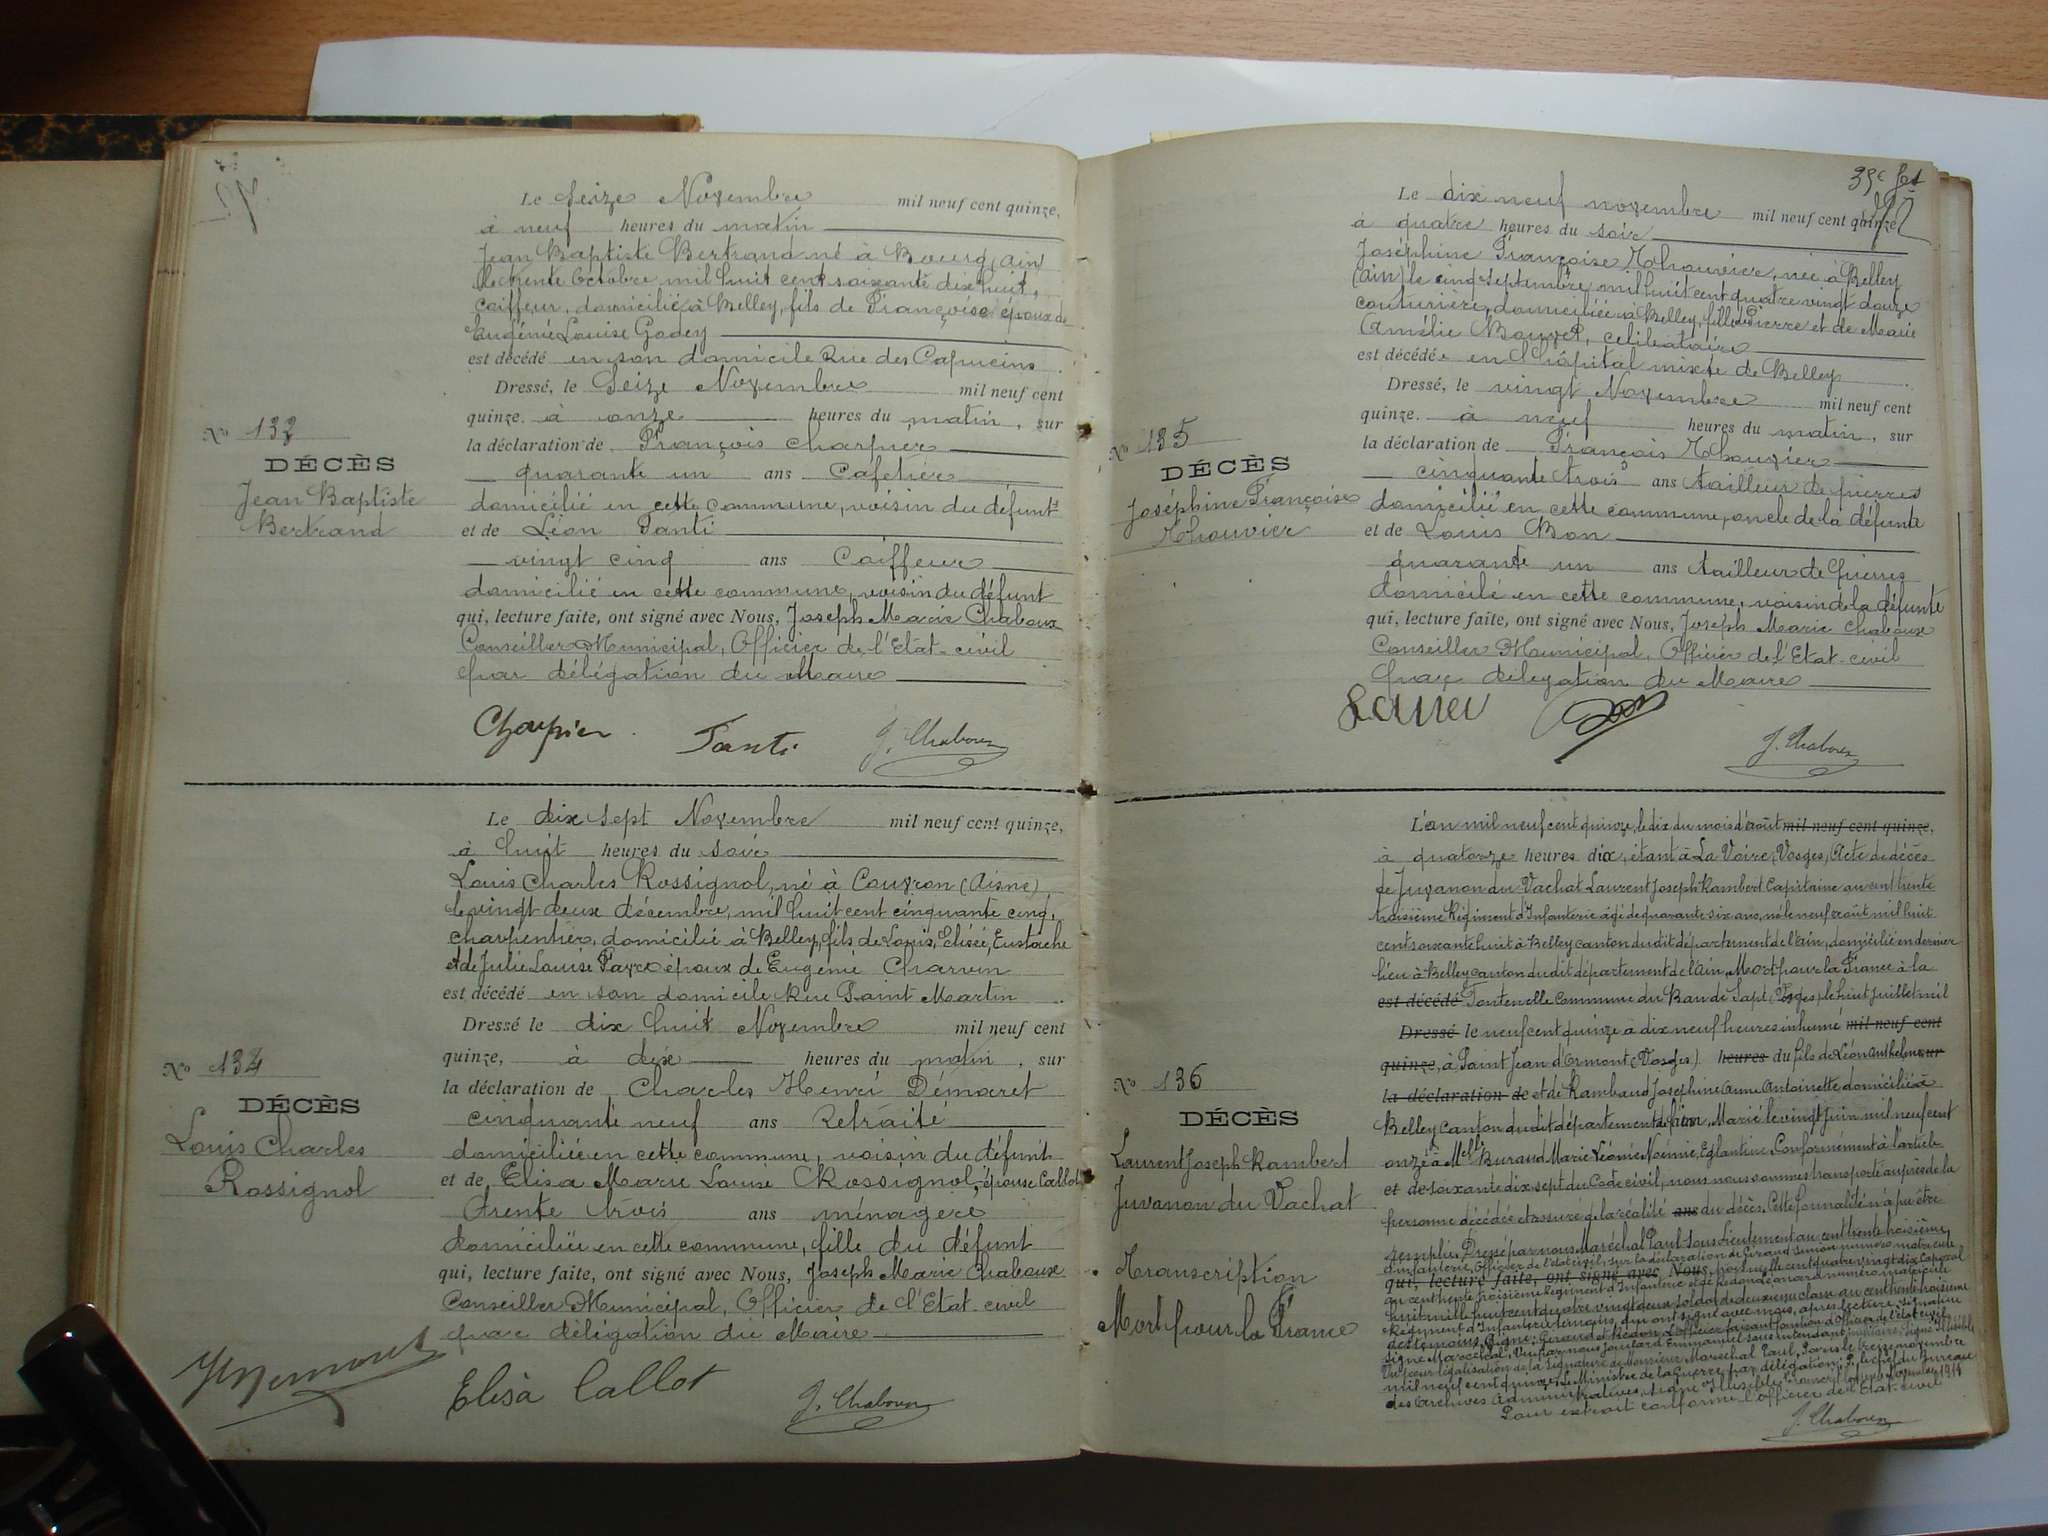 Le Seize Novembre mil neuf cent quinze,
à neuf heures du matin
Jean Baptiste Bertrand né à Bourg (Ain)
le trente Octobre mil huit cent soixante dix huit,
coiffeur, domicilié à Belley, fils de Françoise époux de
Eugénie Louise Godey
est décédé en son domicile Rue des Capucins
Dressé, le Seize Novembre mil neuf cent
quinze. à onze heures du matin, sur
la déclaration de François Charpier
quarante un ans Cafetier
domicilié en cette commune, voisin du défunt
et de Léon Santi
vingt cinq ans Coiffeur
domicilié en cette commune, voisin du défunt
qui, lecture faite, ont signé avec Nous, Joseph Marie Chaboux
Conseiller Municipal, Officier de l'Etat-civil
par délégation du Maire
Charpier Santi J. Chaboux
No 133
DÉCÈS
Jean Baptiste
Bertrand
Le dix sept Novembre mil neuf cent quinze,
à huit heures du soir
Louis Charles Rossignol, né à Couvron (Aisne)
le vingt deux décembre, mil huit cent cinquante cinq,
charpentier, domicilié à Belley, fils de Louis, Elisée, Eustache
et de Julie Louise Payce époux de Eugénie Charvin
est décédé en son domicile Rue Saint Martin
Dressé le dix huit Novembre mil neuf cent
quinze, à dix heures du matin, sur
la déclaration de Charles Henri Démaret
cinquante neuf ans Retraité
domiciliée en cette commune, voisin du défunt
et de Elisa Marie Louise Rossignol, épouse Callot
trente trois ans ménagère
domiciliée en cette commune, fille du défunt
qui, lecture faite, ont signé avec Nous, Joseph Marie Chaboux
Conseiller Municipal, Officier de l'Etat-civil
par délégation du Maire
Elisa Callot J. Chaboux
No 134
DÉCÈS
Louis Charles
Rossignol
35e fet
Le dix neuf novembre mil neuf cent quinze
à quatre heures du soir
Joséphine Françoise Thouvier, née à Belley
(Ain) le cinq septembre mil huit cent quatre vingt douze
couturière, domiciliée à Belley, fille de Pierre et de Marie
Amélie Bouvet, célibataire
est décédée en l'hôpital mixte de Belley
Dressé, le vingt Novembre mil neuf cent
quinze. à neuf heures du matin, sur
la déclaration de François Thouvier
cinquante trois ans tailleur de pierres
domicilié en cette commune, oncle de la défunte
et de Louis Bon
quarante un ans tailleur de pierres
domicilié en cette commune, voisin de la défunte
qui, lecture faite, ont signé avec Nous, Joseph Marie Chaboux
Conseiller Municipal, Officier de l'Etat-civil
par délégation du Maire
J. Chaboux
No 135
DÉCÈS
Joséphine Françoise
Thouvier
L'an mil neuf cent quinze, le dix du mois d'août mil neuf cent quinze,
à quatorze heures dix, étant à La Voivre, Vosges, Acte de décès
de Juvanon du Vachat Laurent Joseph Rambert Capitaine au cent trente
troisième Régiment d'Infanterie âgé de quarante six ans, né le neuf août mil huit
cent soixante huit à Belley canton dudit département de l'Ain, domicilié en dernier
lieu à Belley canton dudit département de l'Ain, Mort pour la France à la
est décédé Fontenelle Commune du Ban de Sapt, Vosges, le huit juillet mil
Dressé le neuf cent quinze à dix neuf heures inhumé mil neuf cent
quinze, à Saint Jean d'Ormont (Vosges) heures du fils de Léon Anthelme sur
la déclaration de et de Rambaud Joséphine Anne Antoinette domicilié à
Belley canton dudit département de l'Ain, Marié le vingt Juin mil neuf cent
onze à Melle Buraud Marie Léonie Noémie, Eglantine. Conformément à l'article
et de soixante dix sept du Code civil, nous nous sommes transporté auprès de la
personne décédée et assuré de la réalité ans du décès. Cette formalité n'a pu être
remplie. Dressé par nous Maréchal Paul Sous Lieutenant au cent trente troisième
d'infanterie, Officier de l'état civil, sur la déclaration de Giraud Simon numéro matricule
qui, lecture faite, ont signé avec Nous, neuf mille cent quatre vingt dix Caporal
au cent trente troisième régiment d'Infanterie et de Redon numéro matricule
huit mille huit cent quatre vingt deux soldat de deuxième classe au cent trente troisième
Régiment d'Infanterie témoins, qui ont signé avec nous, après lecture. Signature
des témoins. Signé: Giraud et Redon. L'officier faisant fonction d'officier de l'état civil
signé Maréchal. Vu par nous Emmanuel sous intendant militaire, signé Illisible
Vu pour légalisation de la signature de Monsieur Maréchal Paul. Paris le treize novembre
mil neuf cent quinze. Le Ministre de la Guerre, par délégation: P. le chef du Bureau
des Archives Administratives, signé: Illisible. Transcrit le Novembre 1915
Pour extrait conforme L'Officier de l'Etat-civil
J. Chaboux
No 136
DÉCÈS
Laurent Joseph Rambert
Juvanon du Vachat
Transcription
Mort pour la France